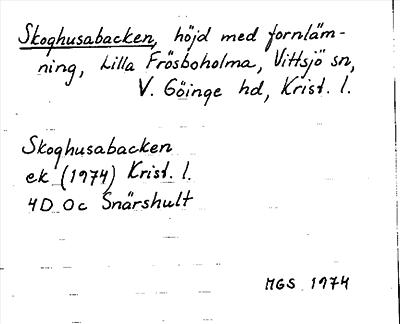 Skoghusabacken, höjd med fornläm-
ning, Lilla Frösboholma, Vittsjö sn,
V. Göinge hd, Krist. l.
Skoghusabacken
ek (1974) Krist. l.
4D 0c Snärshult
MGS 1974